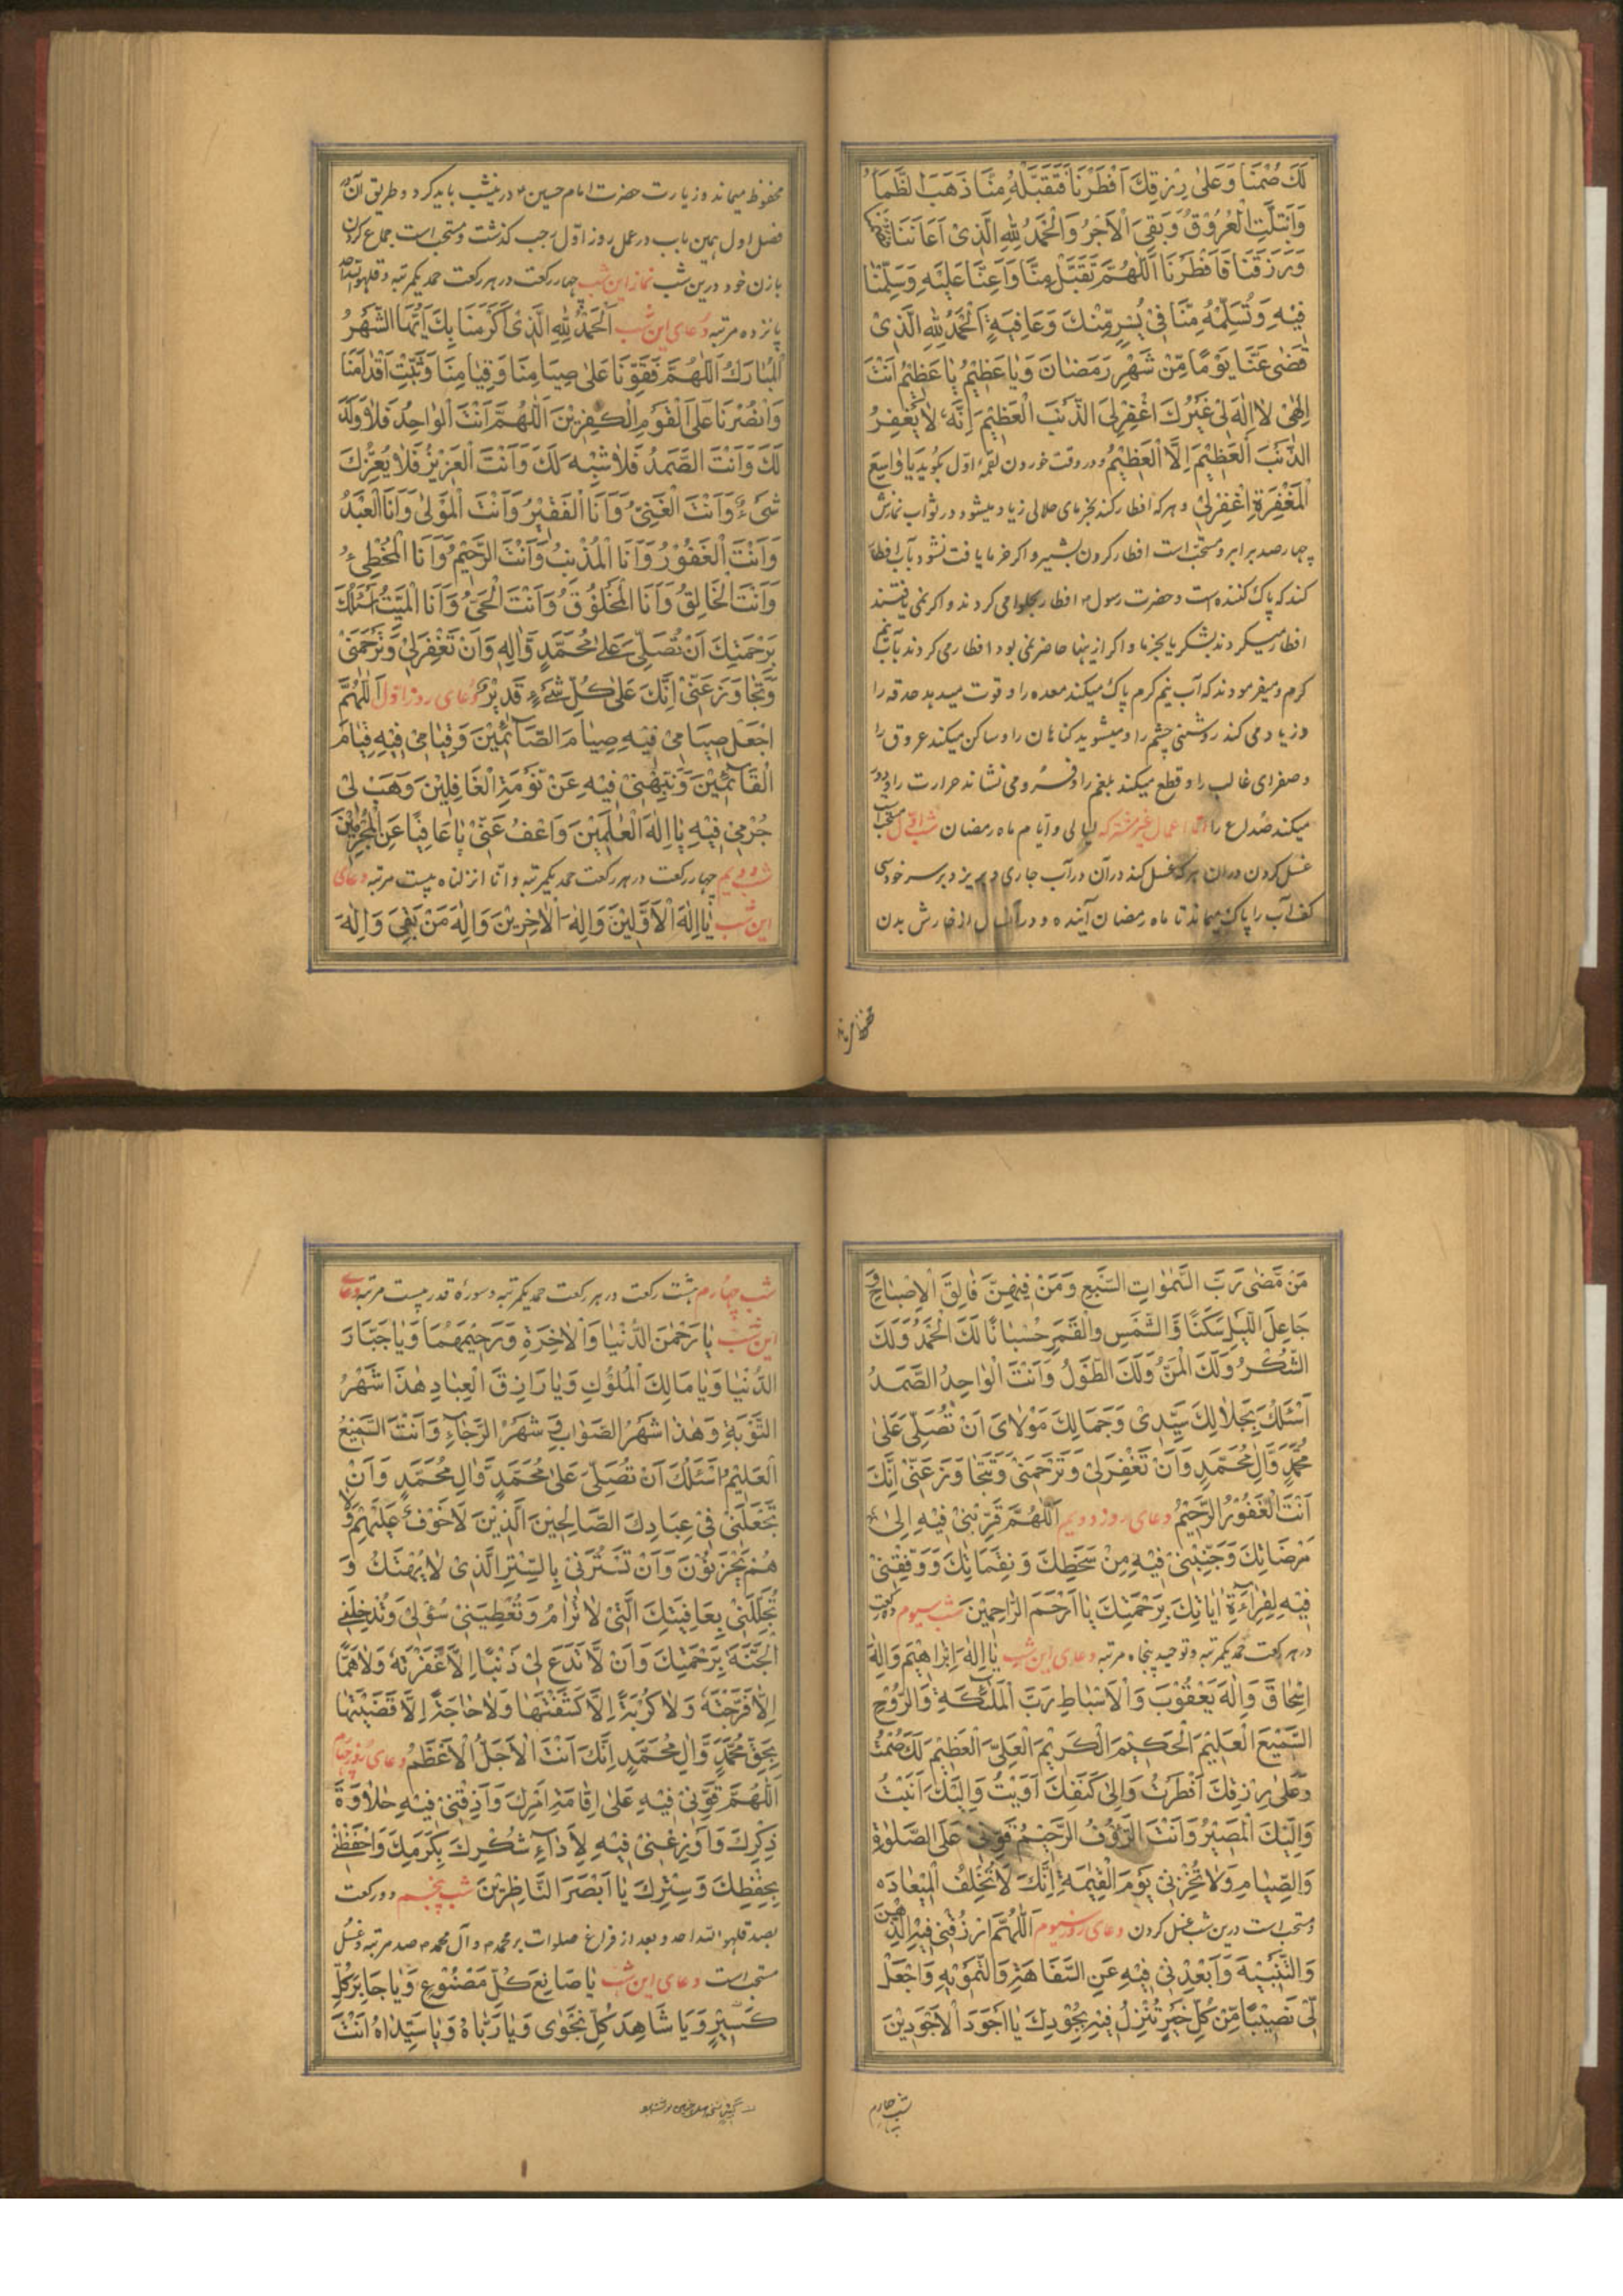 لَكَ صُمْنَا وَعَلىٰ رِزْقِكَ اَفْطَرْنَا فَتَقَبَّلْهُ مِنَّا ذَهَبَ الظَّمَأُ
وَابْتَلَّتِ الْعُرُوْقُ وَبَقِىَ الْاَجْرُ وَالْحَمْدُ لِلّٰهِ الَّذِىْ اَعَانَنَا
وَرَزَقَنَا فَاَفْطَرْنَا اَللّٰهُمَّ تَقَبَّلْ مِنَّا وَاَعِنَّا عَلَيْهِ وَسَلِّمْنَا
فِيْهِ وَتُسَلِّمْهُ مِنَّا فِىْ يُسْرٍ مِّنْكَ وَعَافِيَةٍ اَلْحَمْدُ لِلّٰهِ الَّذِىْ
قَضٰى عَنَّا يَوْمًا مِّنْ شَهْرِ رَمَضٰانَ وَيٰا عَظِيْمُ يٰا عَظِيْمُ اَنْتَ
اِلٰهِىْ لٰا اِلٰهَ لِىْ غَيْرُكَ اغْفِرْ لِىَ الذَّنْبَ الْعَظِيْمَ اِنَّهُ لٰا يَغْفِرُ
الذَّنْبَ الْعَظِيْمَ اِلَّا الْعَظِيْمُ ودر وقت خوردن لقمهٔ اوّل بگويد يَا وٰاسِعَ
الْمَغْفِرَةِ اِغْفِرْ لِىْ وهركه افطار كند بخرماى حلالى زياد ميشود در ثواب نمازش
چهار صد برابر ومستحبّ است افطار كردن بشير واكر خرما يافت نشود بآب افطار
كند كه پاك كننده است وحضرت رسول ص افطار بحلوا مى كردند واكر نمى يافتند
افطار ميكردند بشكر يا بخرما واكر ازينها حاضر نمى بود افطار مى كردند بآب نيم
كرم وميفرمودند كه آب نيم كرم پاك ميكند معده را وقوت ميدهد حدقه را
وزياد مى كند روشنى چشم را وميشويد كناهان را وساكن ميكند عروق را
وصفراى غالب را وقطع ميكند بلغم را وفرو مى نشاند حرارت را ودور
ميكند صُداع را امّا اعمال غير مشتركه ليالى وايام ماه رمضان شب اوّل مستحبّ
غسل كردن در آن هركه غسل كند در آن در آب جارى وبريزد بر سر خود سى
كف آب را پاك ميماند تا ماه رمضان آينده ودر آنسال از خارش بدن
محفوظ ميماند وزيارت حضرت امام حسين ع درينشب بايد كرد وطريق آن در
فصل اول همين باب در عمل روز اوّل رجب كذشت ومستحب است جماع كردن
بازن خود درين شب نماز اين شب چهار ركعت در هر ركعت حمد يكمرتبه وقل هو الله احد
پانزده مرتبه دعاى اين شب اَلْحَمْدُ لِلّٰهِ الَّذِىْ اَكْرَمَنَا بِكَ اَيُّهَا الشَّهْرُ
الْمُبٰارَكُ اَللّٰهُمَّ فَقَوِّنَا عَلىٰ صِيَامِنَا وَقِيَامِنَا وَثَبِّتْ اَقْدٰامَنَا
وَانْصُرْنَا عَلَى الْقَوْمِ الْكٰفِرِيْنَ اَللّٰهُمَّ اَنْتَ الْوٰاحِدُ فَلٰا وَلَدَ
لَكَ وَاَنْتَ الصَّمَدُ فَلٰا شِبْهَ لَكَ وَاَنْتَ الْعَزِيْزُ فَلٰا يُعِزُّكَ
شَىْءٌ وَاَنْتَ الْغَنِىُّ وَاَنَا الْفَقِيْرُ وَاَنْتَ الْمَوْلىٰ وَاَنَا الْعَبْدُ
وَاَنْتَ الْغَفُوْرُ وَاَنَا الْمُذْنِبُ وَاَنْتَ الرَّحِيْمُ وَاَنَا الْمُخْطِئُ
وَاَنْتَ الْخَالِقُ وَاَنَا الْمَخْلُوْقُ وَاَنْتَ الْحَىُّ وَاَنَا الْمَيِّتُ اَسْئَلُكَ
بِرَحْمَتِكَ اَنْ تُصَلِّىَ عَلىٰ مُحَمَّدٍ وَّاٰلِهِ وَاَنْ تَغْفِرَ لِىْ وَتَرْحَمَنِىْ
وَتَجَاوَزَ عَنِّىْ اِنَّكَ عَلىٰ كُلِّ شَىْءٍ قَدِيْرٌ دُعاى روز اوّل اَللّٰهُمَّ
اجْعَلْ صِيَامِىْ فِيْهِ صِيٰامَ الصَّآئِمِيْنَ وَقِيٰامِىْ فِيْهِ قِيٰامَ
الْقَآئِمِيْنَ وَنَبِّهْنِىْ فِيْهِ عَنْ نَوْمَةِ الْغَافِلِيْنَ وَهَبْ لِىْ
جُرْمِىْ فِيْهِ يٰا اِلٰهَ الْعٰلَمِيْنَ وَاعْفُ عَنِّىْ يٰا عَافِيًا عَنِ الْمُجْرِمِيْنَ
شب دويم چهار ركعت در هر ركعت حمد يكمرتبه وانّا انزلناه بيست مرتبه دعاى
اين شب يٰا اِلٰهَ الْاَوَّلِيْنَ وَاِلٰهَ الْاٰخِرِيْنَ وَاِلٰهَ مَنْ بَقِىَ وَاِلٰهَ
مَنْ مَّضٰى رَبَّ السَّمٰوٰاتِ السَّبْعِ وَمَنْ فِيْهِنَّ فٰالِقَ الْاِصْبٰاحِ وَ
جَاعِلَ اللَّيْلِ سَكَنًا وَّالشَّمْسِ وَالْقَمَرِ حُسْبٰانًا لَكَ الْحَمْدُ وَلَكَ
الشُّكْرُ وَلَكَ الْمَنُّ وَلَكَ الطَّوْلُ وَاَنْتَ الْوٰاحِدُ الصَّمَدُ
اَسْئَلُكَ بِجَلٰالِكَ سَيِّدِىْ وَجَمَالِكَ مَوْلٰاىَ اَنْ تُصَلِّىَ عَلىٰ
مُحَمَّدٍ وَّاٰلِ مُحَمَّدٍ وَاَنْ تَغْفِرَ لِىْ وَتَرْحَمَنِىْ وَتَجَاوَزَ عَنِّىْ اِنَّكَ
اَنْتَ الْغَفُوْرُ الرَّحِيْمُ دعاى روز دويم اَللّٰهُمَّ قَرِّبْنِىْ فِيْهِ اِلىٰ
مَرْضَاتِكَ وَجَنِّبْنِىْ فِيْهِ مِنْ سَخَطِكَ وَنِقَمَاتِكَ وَوَفِّقْنِىْ
فِيْهِ لِقِرٰاءَةِ اٰيٰاتِكَ بِرَحْمَتِكَ يٰا اَرْحَمَ الرَّاحِمِيْنَ شب سيوم ده ركعت
در هر ركعت حمد يكمرتبه وتوحيد پنجاه مرتبه دعاى اين شب يٰا اِلٰهَ اِبْرَاهِيْمَ وَاِلٰهَ
اِسْحٰاقَ وَاِلٰهَ يَعْقُوْبَ وَالْاَسْبَاطِ رَبَّ الْمَلٰٓئِكَةِ وَالرُّوْحِ
السَّمِيْعَ الْعَلِيْمَ الْحَكِيْمَ الْكَرِيْمَ الْعَلِىَّ الْعَظِيْمَ لَكَ صُمْتُ
وَعَلىٰ رِزْقِكَ اَفْطَرْتُ وَاِلىٰ كَنَفِكَ اٰوَيْتُ وَاِلَيْكَ اَنَبْتُ
وَاِلَيْكَ الْمَصِيْرُ وَاَنْتَ الرَّؤُفُ الرَّحِيْمُ قَوِّنِىْ عَلَى الصَّلٰوةِ
وَالصِّيٰامِ وَلٰا تُخْزِنِىْ يَوْمَ الْقِيٰمَةِ اِنَّكَ لٰا تُخْلِفُ الْمِيْعَادَ
ومستحب است درين شب غسل كردن دعاى روز سيوم اَللّٰهُمَّ ارْزُقْنِىْ فِيْهِ الذِّهْنَ
وَالتَّنْبِيْهَ وَاَبْعِدْنِىْ فِيْهِ عَنِ السَّفَاهَةِ وَالتَّمْوِيْهِ وَاجْعَلْ
لِّىْ نَصِيْبًا مِّنْ كُلِّ خَيْرٍ تُنْزِلُ فِيْهِ بِجُوْدِكَ يٰا اَجْوَدَ الْاَجْوَدِيْنَ
شب چهارم
شب چهارم هشت ركعت در هر ركعت حمد يكمرتبه وسورهٔ قدر بيست مرتبه دعاى
اين شب يٰا رَحْمٰنَ الدُّنْيٰا وَالْاٰخِرَةِ وَرَحِيْمَهُمَا وَيٰا جَبّٰارَ
الدُّنْيٰا وَيٰا مٰالِكَ الْمُلُوْكِ وَيٰا رَازِقَ الْعِبٰادِ هٰذٰا شَهْرُ
التَّوْبَةِ وَهٰذٰا شَهْرُ الصَّوٰابِ وَشَهْرُ الرَّجٰاءِ وَاَنْتَ السَّمِيْعُ
الْعَلِيْمُ اَسْئَلُكَ اَنْ تُصَلِّىَ عَلىٰ مُحَمَّدٍ وَّاٰلِ مُحَمَّدٍ وَاَنْ
تَجْعَلَنِىْ فِىْ عِبَادِكَ الصَّالِحِيْنَ الَّذِيْنَ لَاخَوْفٌ عَلَيْهِمْ وَلٰا
هُمْ يَحْزَنُوْنَ وَاَنْ تَسْتُرَنِىْ بِالسِّتْرِ الَّذِىْ لٰا يُهْتَكُ وَ
تُجَلِّلَنِىْ بِعَافِيَتِكَ الَّتِىْ لٰا تُرٰامُ وَتُعْطِيَنِىْ سُؤْلِىْ وَتُدْخِلَنِىْ
الْجَنَّةَ بِرَحْمَتِكَ وَاَنْ لَّا تَدَعَ لِىْ ذَنْبًا اِلَّا غَفَرْتَهُ وَلٰا هَمًّا
اِلَّا فَرَّجْتَهُ وَلٰا كُرْبَةً اِلَّا كَشَفْتَهٰا وَلٰا حٰاجَةً اِلَّا قَضَيْتَهٰا
بِحَقِّ مُحَمَّدٍ وَّاٰلِ مُحَمَّدٍ اِنَّكَ اَنْتَ الْاَجَلُّ الْاَعْظَمُ دعاى روز چهارم
اَللّٰهُمَّ قَوِّنِىْ فِيْهِ عَلىٰ اِقٰامَةِ اَمْرِكَ وَاَذِقْنِىْ فِيْهِ حَلٰاوَةَ
ذِكْرِكَ وَاَوْزِعْنِىْ فِيْهِ لِاَدٰاءِ شُكْرِكَ بِكَرَمِكَ وَاحْفَظْنِىْ
بِحِفْظِكَ وَسِتْرِكَ يٰا اَبْصَرَ النَّاظِرِيْنَ شب پنجم دو ركعت
بصد قل هو الله احد وبعد از فراغ صلوات بر محمد ص وآل محمد ص صد مرتبه وغسل
مستحب است دعاى اين شب يٰا صَانِعَ كُلِّ مَصْنُوْعٍ وَيٰا جَابِرَ كُلِّ
كَسِيْرٍ وَيَا شَاهِدَ كُلِّ نَجْوٰى وَيٰا رَبّٰاهُ وَيٰا سَيِّدٰاهُ اَنْتَ